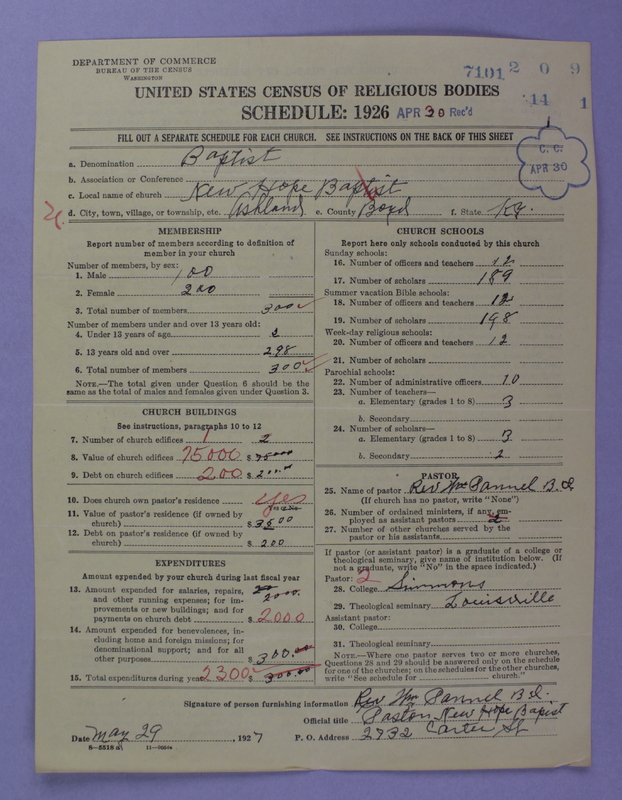 DEPARTMENT OF COMMERCE
BUREAU OF THE CENSUS
WASHINGTON
7101 2 0 9
UNITED STATES CENSUS OF RELIGIOUS BODIES
11 1
SCHEDULE: 1926 APR 30 Rec'd
FILL OUT A SEPARATE SCHEDULE FOR EACH CHURCH. SEE INSTRUCTIONS ON THE BACK OF THIS SHEET
C. C.
APR 30
a. Denomination Baptist
b. Association or Conference
c. Local name of church New Hope Baptist
d. City, town, village, or township, etc. Ashland e. County Boyd f. State Ky.
MEMBERSHIP
Report number of members according to definition of member in your church
Number of members, by sex:
1. Male 100
2. Female 200
3. Total number of members 300
Number of members under and over 13 years old:
4. Under 13 years of age 2
5. 13 years old and over 298
6. Total number of members 300
NOTE.—The total given under Question 6 should be the
same as the total of males and females given under Question 3.
CHURCH BUILDINGS
See instructions, paragraphs 10 to 12
7. Number of church edifices 1 2
8. Value of church edifices 75000 $
9. Debt on church edifices 200 $
10. Does church own pastor's residence yes
Yes or No
11. Value of pastor's residence (if owned by
church) $ 3500
12. Debt on pastor's residence (if owned by
church) $ 200
EXPENDITURES
Amount expended by your church during last fiscal year
13. Amount expended for salaries, repairs,
and other running expenses; for im-
provements or new buildings; and for
payments on church debt $ 2000
2000.
14. Amount expended for benevolences, in-
cluding home and foreign missions; for
denominational support; and for all
other purposes $ 300.00
15. Total expenditures during year 2300 $ 300.00
CHURCH SCHOOLS
Report here only schools conducted by this church
Sunday schools:
16. Number of officers and teachers 12
17. Number of scholars 189
Summer vacation Bible schools:
18. Number of officers and teachers 12
19. Number of scholars 198
Week-day religious schools:
20. Number of officers and teachers 12
21. Number of scholars
Parochial schools:
22. Number of administrative officers 10
23. Number of teachers—
a. Elementary (grades 1 to 8) 3
b. Secondary
24. Number of scholars—
a. Elementary (grades 1 to 8) 3
b. Secondary 2
PASTOR
25. Name of pastor Rev Wm Pannel B.D.
(If church has no pastor, write "None")
26. Number of ordained ministers, if any, em-
ployed as assistant pastors 2
27. Number of other churches served by the
pastor or his assistants
If pastor (or assistant pastor) is a graduate of a college or
theological seminary, give name of institution below. (If
not a graduate, write "No" in the space indicated.)
Pastor: 2
28. College Simmons
29. Theological seminary Louisville
Assistant pastor:
30. College
31. Theological seminary
NOTE.—Where one pastor serves two or more churches,
Questions 28 and 29 should be answered only on the schedule
for one of the churches; on the schedules for the other churches,
write "See schedule for church."
Signature of person furnishing information Rev Wm Pannel B.D.
Official title Pastor New Hope Baptist
Date May 29, 1927 P. O. Address 2732 Carter St